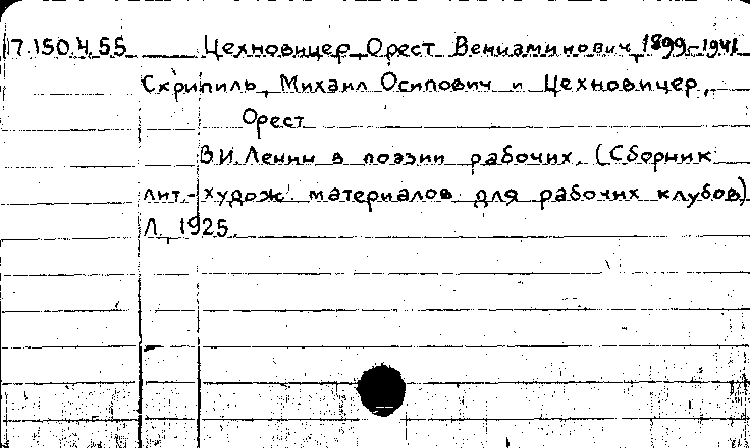 17.150.4.55 Цехновицер, Орест Вениаминович, 1899-1941
Скрипиль, Михаил Осипович и Цехновицер,
Орест
В.И. Ленин в поэзии рабочих. (Сборник
лит.-худож. материалов для рабочих клубов)
Л., 1925.